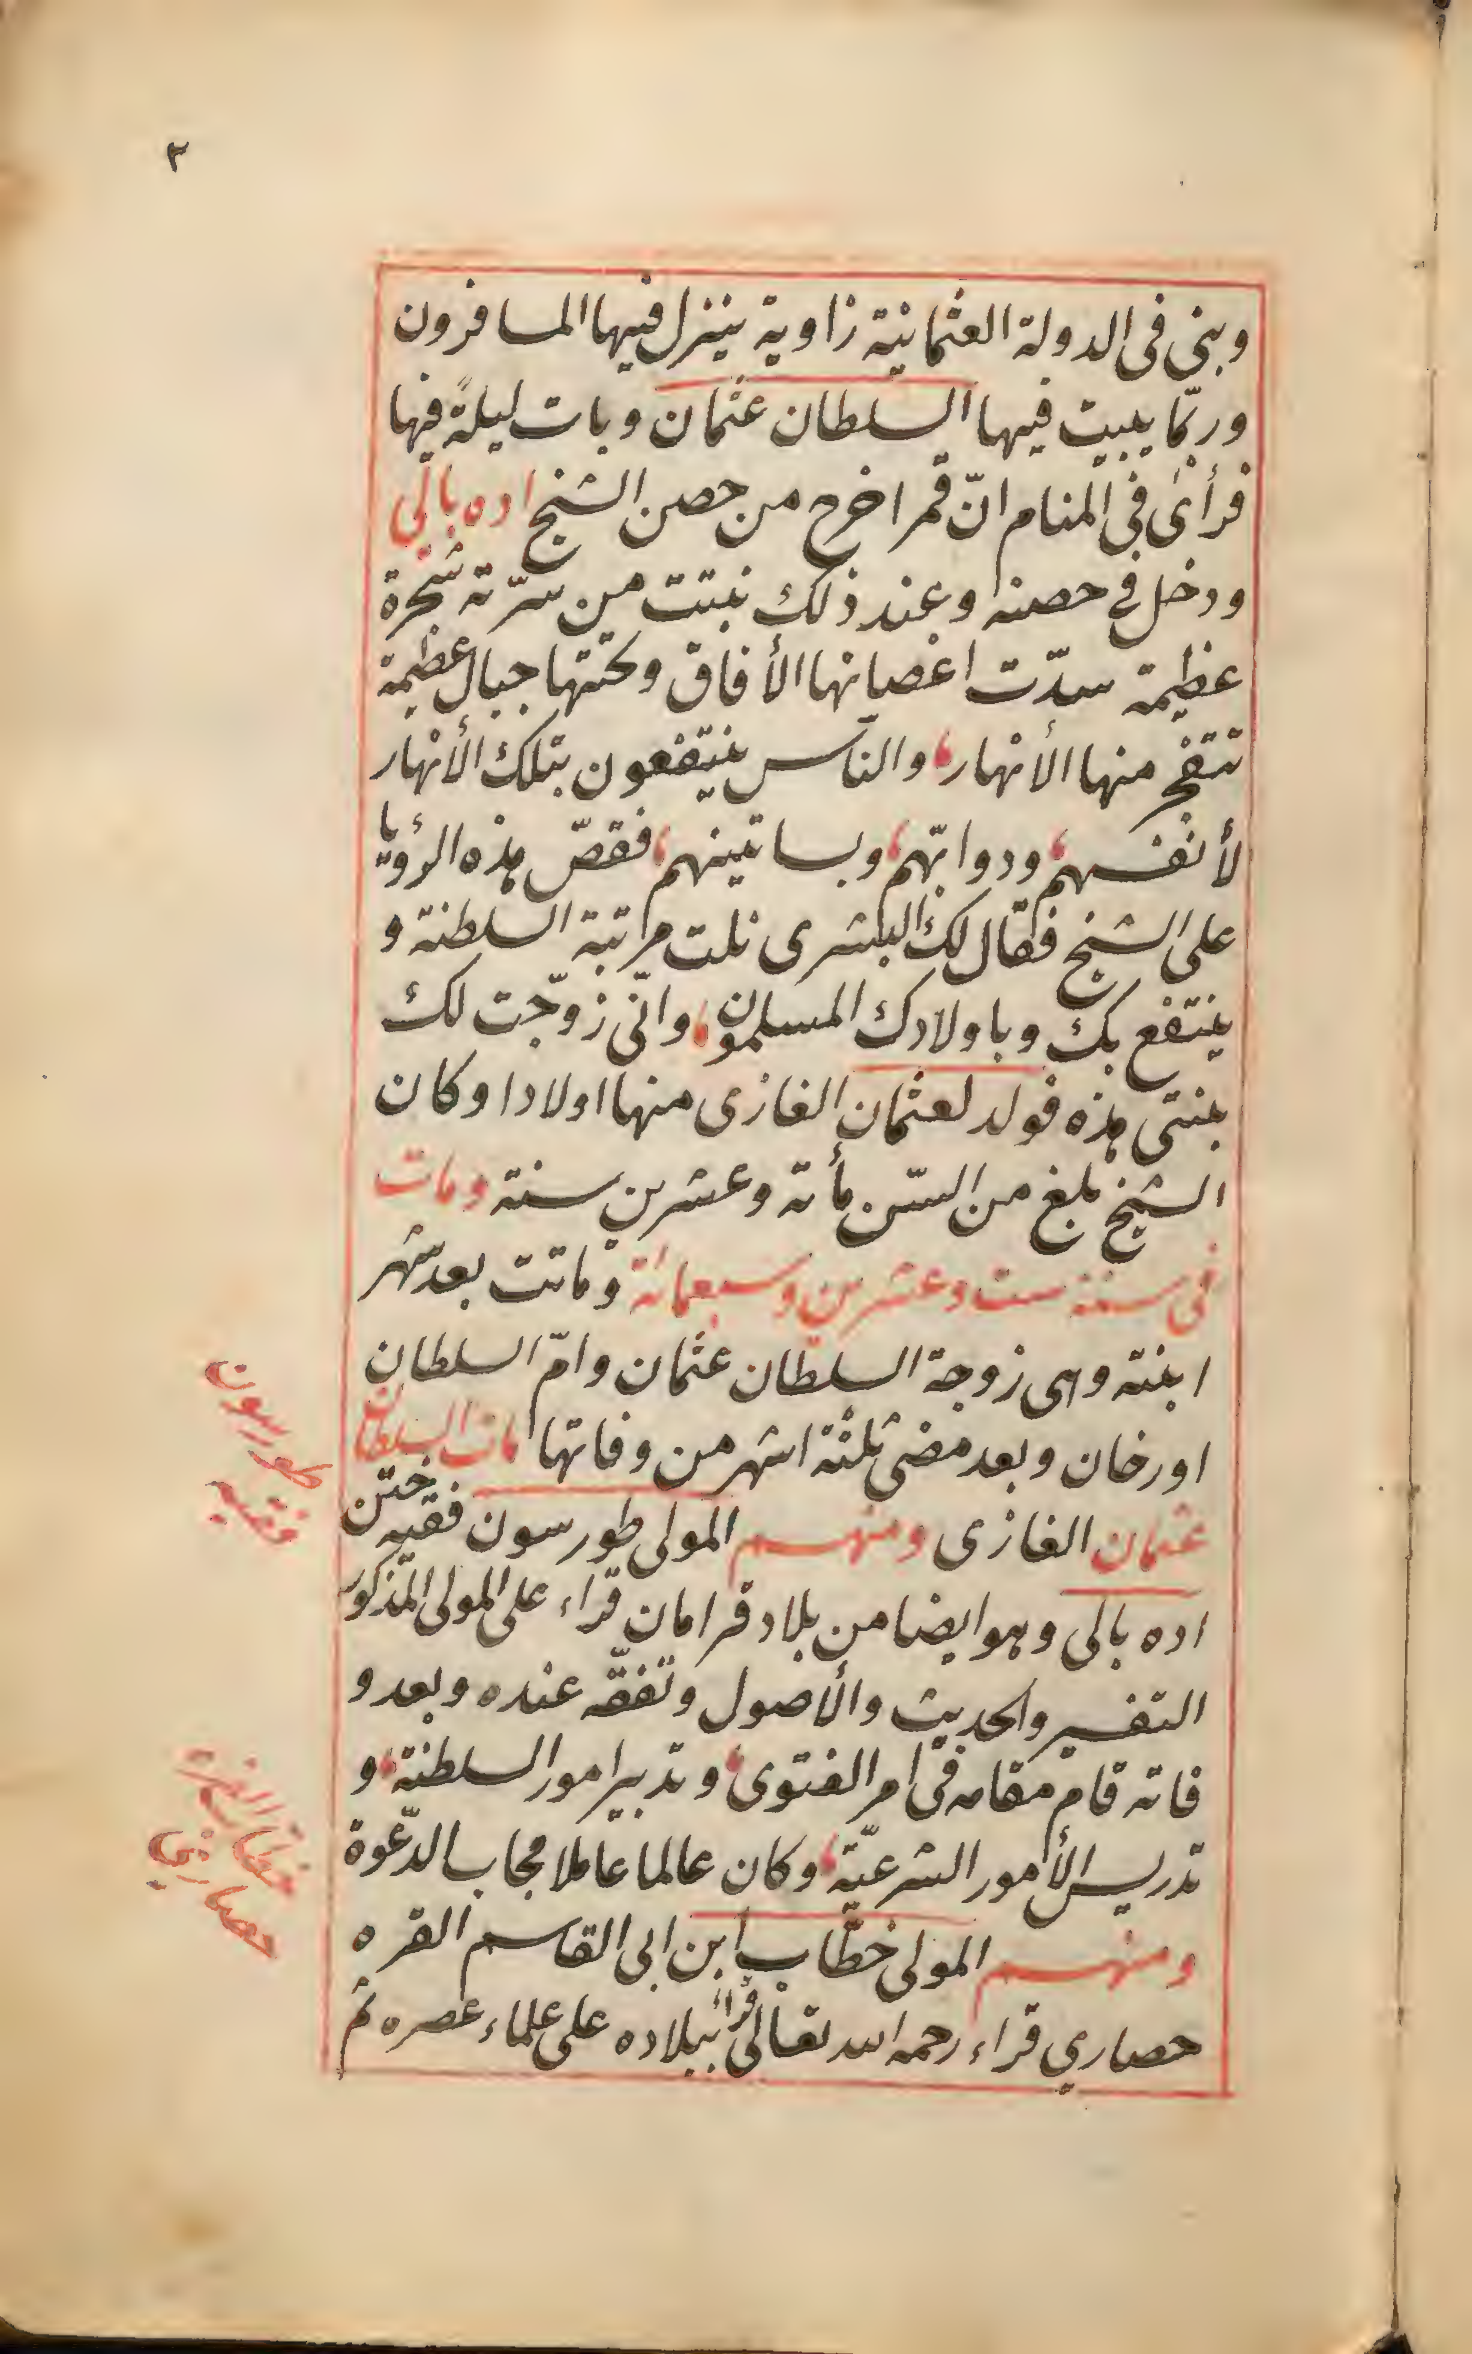 ٣
وبنى فى الدولة العثمانية زاوية ينزل فيها المسافرون
وربّما يبيت فيها السلطان عثمان وبات ليلةً فيها
فرأى فى المنام انّ قمرا خرج من حصن الشيخ اده بالى
ودخل فى حصنه وعند ذلك نبتت من سرّته شجرة
عظيمة سدّت اغصانها الأفاق وتحتها جبال عظيمة
تتفجر منها الأنهار، والناس ينتفعون بتلك الأنهار
لأنفسهم، ودوابّهم، وبساتينهم، فقصّ هذه الرؤيا
على الشيخ فقال لك البشرى نلت مرتبة السلطنة و
ينتفع بك وباولادك المسلمون، وانّى زوّجت لك
بنتى هذه فولد لعثمان الغازى منها اولادا وكان
الشيخ بلغ من السّن مأته وعشرين سنة ومات
فى سنة ست وعشرين وسبعمائة وماتت بعد شهر
ابنته وهى زوجة السلطان عثمان وامّ السلطان
اورخان وبعد مضى ثلثة اشهر من وفاتها مات السلطان
عثمان الغازى ومنهم المولى طورسون فقيه ختن
اده بالى وهو ايضا من بلاد قرامان قراء على المولى المذكور
التفسير والحديث والأصول وتفقّه عنده وبعد و
فاته قام مقامه فى امر الفتوى، وتدبير امور السلطنة، و
تدريس الأمور الشرعيّة، وكان عالما عاملا مجاب الدّعوة
ومنهم المولى خطّاب ابن ابى القاسم القره
حصاري قراء رحمه الله تعالى قرأ ببلاده على علماء عصره ثم
طورسون
فقيه
خطاب القره
حصارى